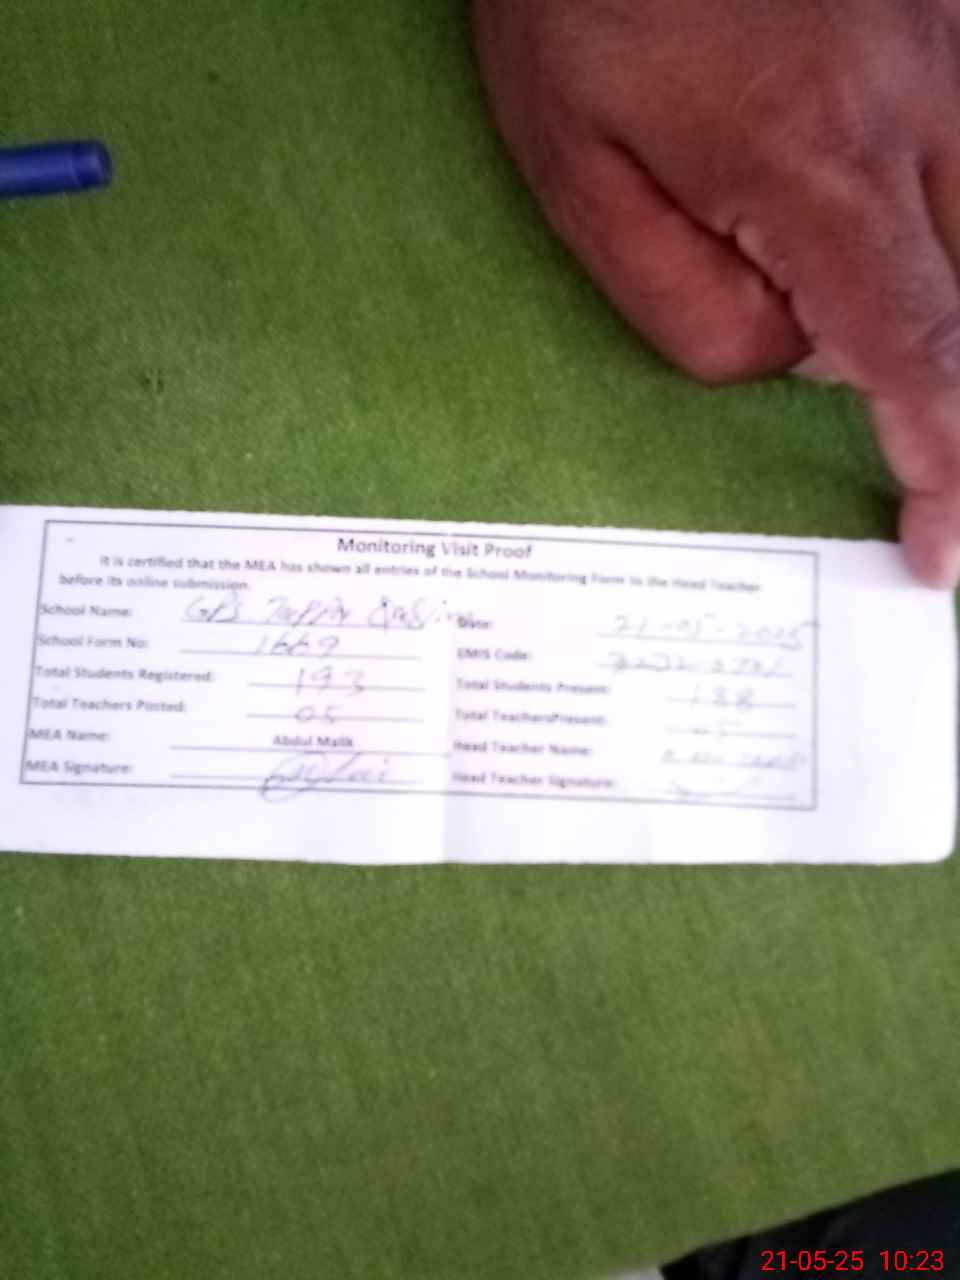 Monitoring Visit Proof
It is certified that the MEA has shown all entries of the School Monitoring Form to the Head Teacher
before its online submission.
School Name: GPS Date: 21-05-2025
School Form No: 1669 EMIS Code:
Total Students Registered: 193 Total Students Present: 188
Total Teachers Posted: 05 Total TeachersPresent: 05
MEA Name: Abdul Malik Head Teacher Name:
MEA Signature: Head Teacher Signature:
21-05-25 10:23